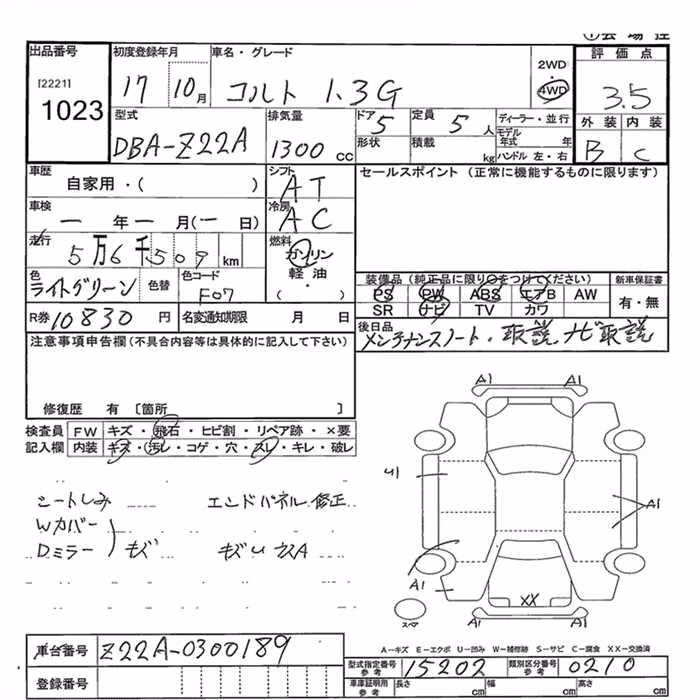 ① 会 場 控
出品番号
[2221]
1023
初度登録年月
17 10月
車名・グレード
コルト 1.3G
2WD
4WD
評価点
3.5
型式
DBA-Z22A
排気量
1300 cc
ドア
5
形状
定員
5人
積載
kg
ディーラー・並行
モデル年式 年
ハンドル 左・右
外装 内装
B C
車歴
自家用・( )
シフト
AT
セールスポイント (正常に機能するものに限ります)
車検
ー 年 ー 月(ー 日)
冷房
AC
走行
5万6千509km
燃料
ガソリン
軽油・
( )
色
ライトグリーン
色替
色コード
F07
装備品 (純正品に限り○をつけてください)
PS PW ABS エアB AW
SR ナビ TV カワ
新車保証書
有・無
R券 10830 円
名変通知期限 月 日
後日品
メンテナンスノート・取説、ナビ取説
注意事項申告欄(不具合内容等は具体的に記入して下さい)
修復歴 有 〔箇所 〕
検査員
記入欄
FW キズ・飛石・ヒビ割・リペア跡・×要
内装 キズ・汚レ・コゲ・穴・スレ・キレ・破レ
シートしみ
Wカバー
Dミラー
キズ
エンドパネル修正
A1 A1
A1
A1
A1
XX
A1
スペア
A－キズ E－エクボ U－凹み W－補修跡 S－サビ C－腐食 XX－交換済
車台番号
Z22A-0300189
登録番号
型式指定番号
参考
15202
類別区分番号
参考
0210
車庫証明用
参考
長さ cm 幅 cm 高さ cm